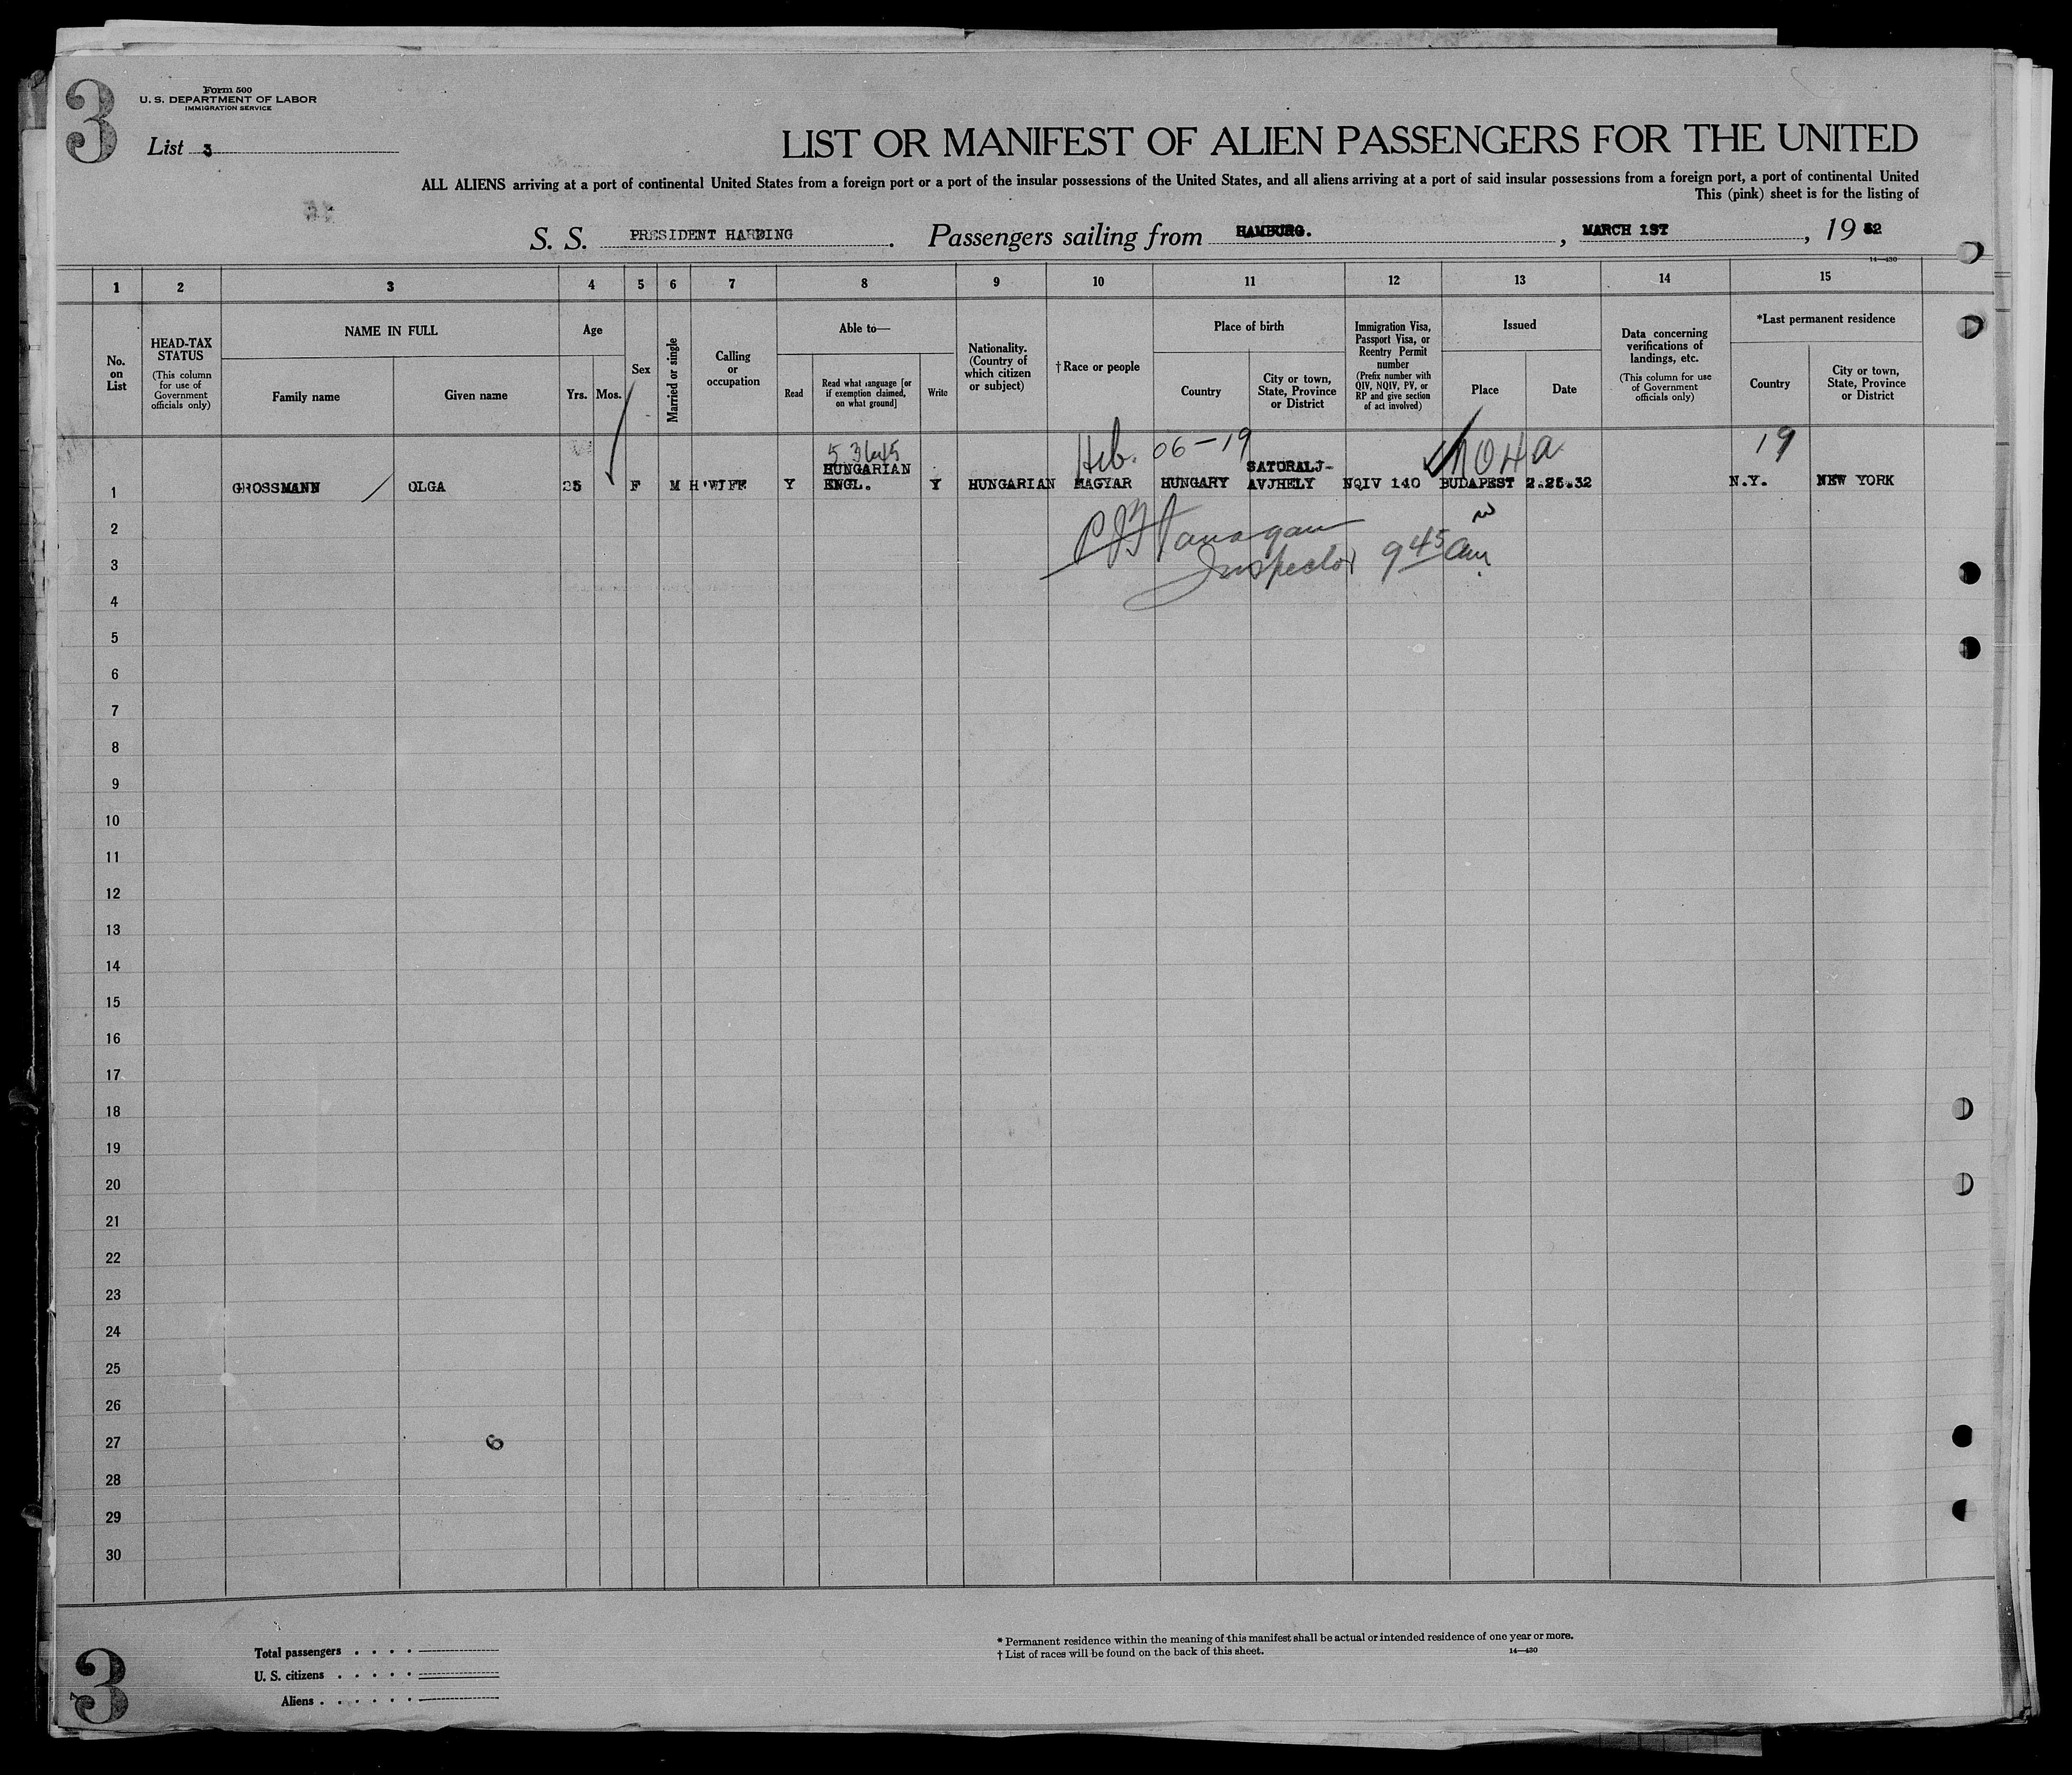 3
Form 500
U. S. DEPARTMENT OF LABOR
IMMIGRATION SERVICE
List 3
LIST OR MANIFEST OF ALIEN PASSENGERS FOR THE UNITED
ALL ALIENS arriving at a port of continental United States from a foreign port or a port of the insular possessions of the United States, and all aliens arriving at a port of said insular possessions from a foreign port, a port of continental United
This (pink) sheet is for the listing of
S. S. PRESIDENT HARDING. Passengers sailing from HAMBURG., MARCH 1ST, 19 32
14—430
1 2 3 4 5 6 7 8 9 10 11 12 13 14 15
No. on List
HEAD-TAX STATUS
(This column for use of Government officials only)
NAME IN FULL
Family name
Given name
Age
Yrs. Mos.
Sex
Married or single
Calling or occupation
Able to—
Read
Read what language [or if exemption claimed, on what ground]
Write
Nationality. (Country of which citizen or subject)
†Race or people
Place of birth
Country
City or town, State, Province or District
Immigration Visa, Passport Visa, or Reentry Permit number
(Prefix number with QIV, NQIV, PV, or RP and give section of act involved)
Issued
Place
Date
Data concerning verifications of landings, etc.
(This column for use of Government officials only)
*Last permanent residence
Country
City or town, State, Province or District
Heb. 06-19 19
HUNGARIAN SATORALJ-
1 GROSSMANN OLGA 25 F M H'WIFE Y ENGL. Y HUNGARIAN MAGYAR HUNGARY AVJHELY NQIV 140 BUDAPEST 2.25.32 N.Y. NEW YORK
2
Flanagan
3
Inspector 9 45 am
4
5
6
7
8
9
10
11
12
13
14
15
16
17
18
19
20
21
22
23
24
25
26
27
6
28
29
30
Total passengers . . . .
U. S. citizens . . . . .
Aliens . . . . . .
* Permanent residence within the meaning of this manifest shall be actual or intended residence of one year or more.
† List of races will be found on the back of this sheet.
14—430
3